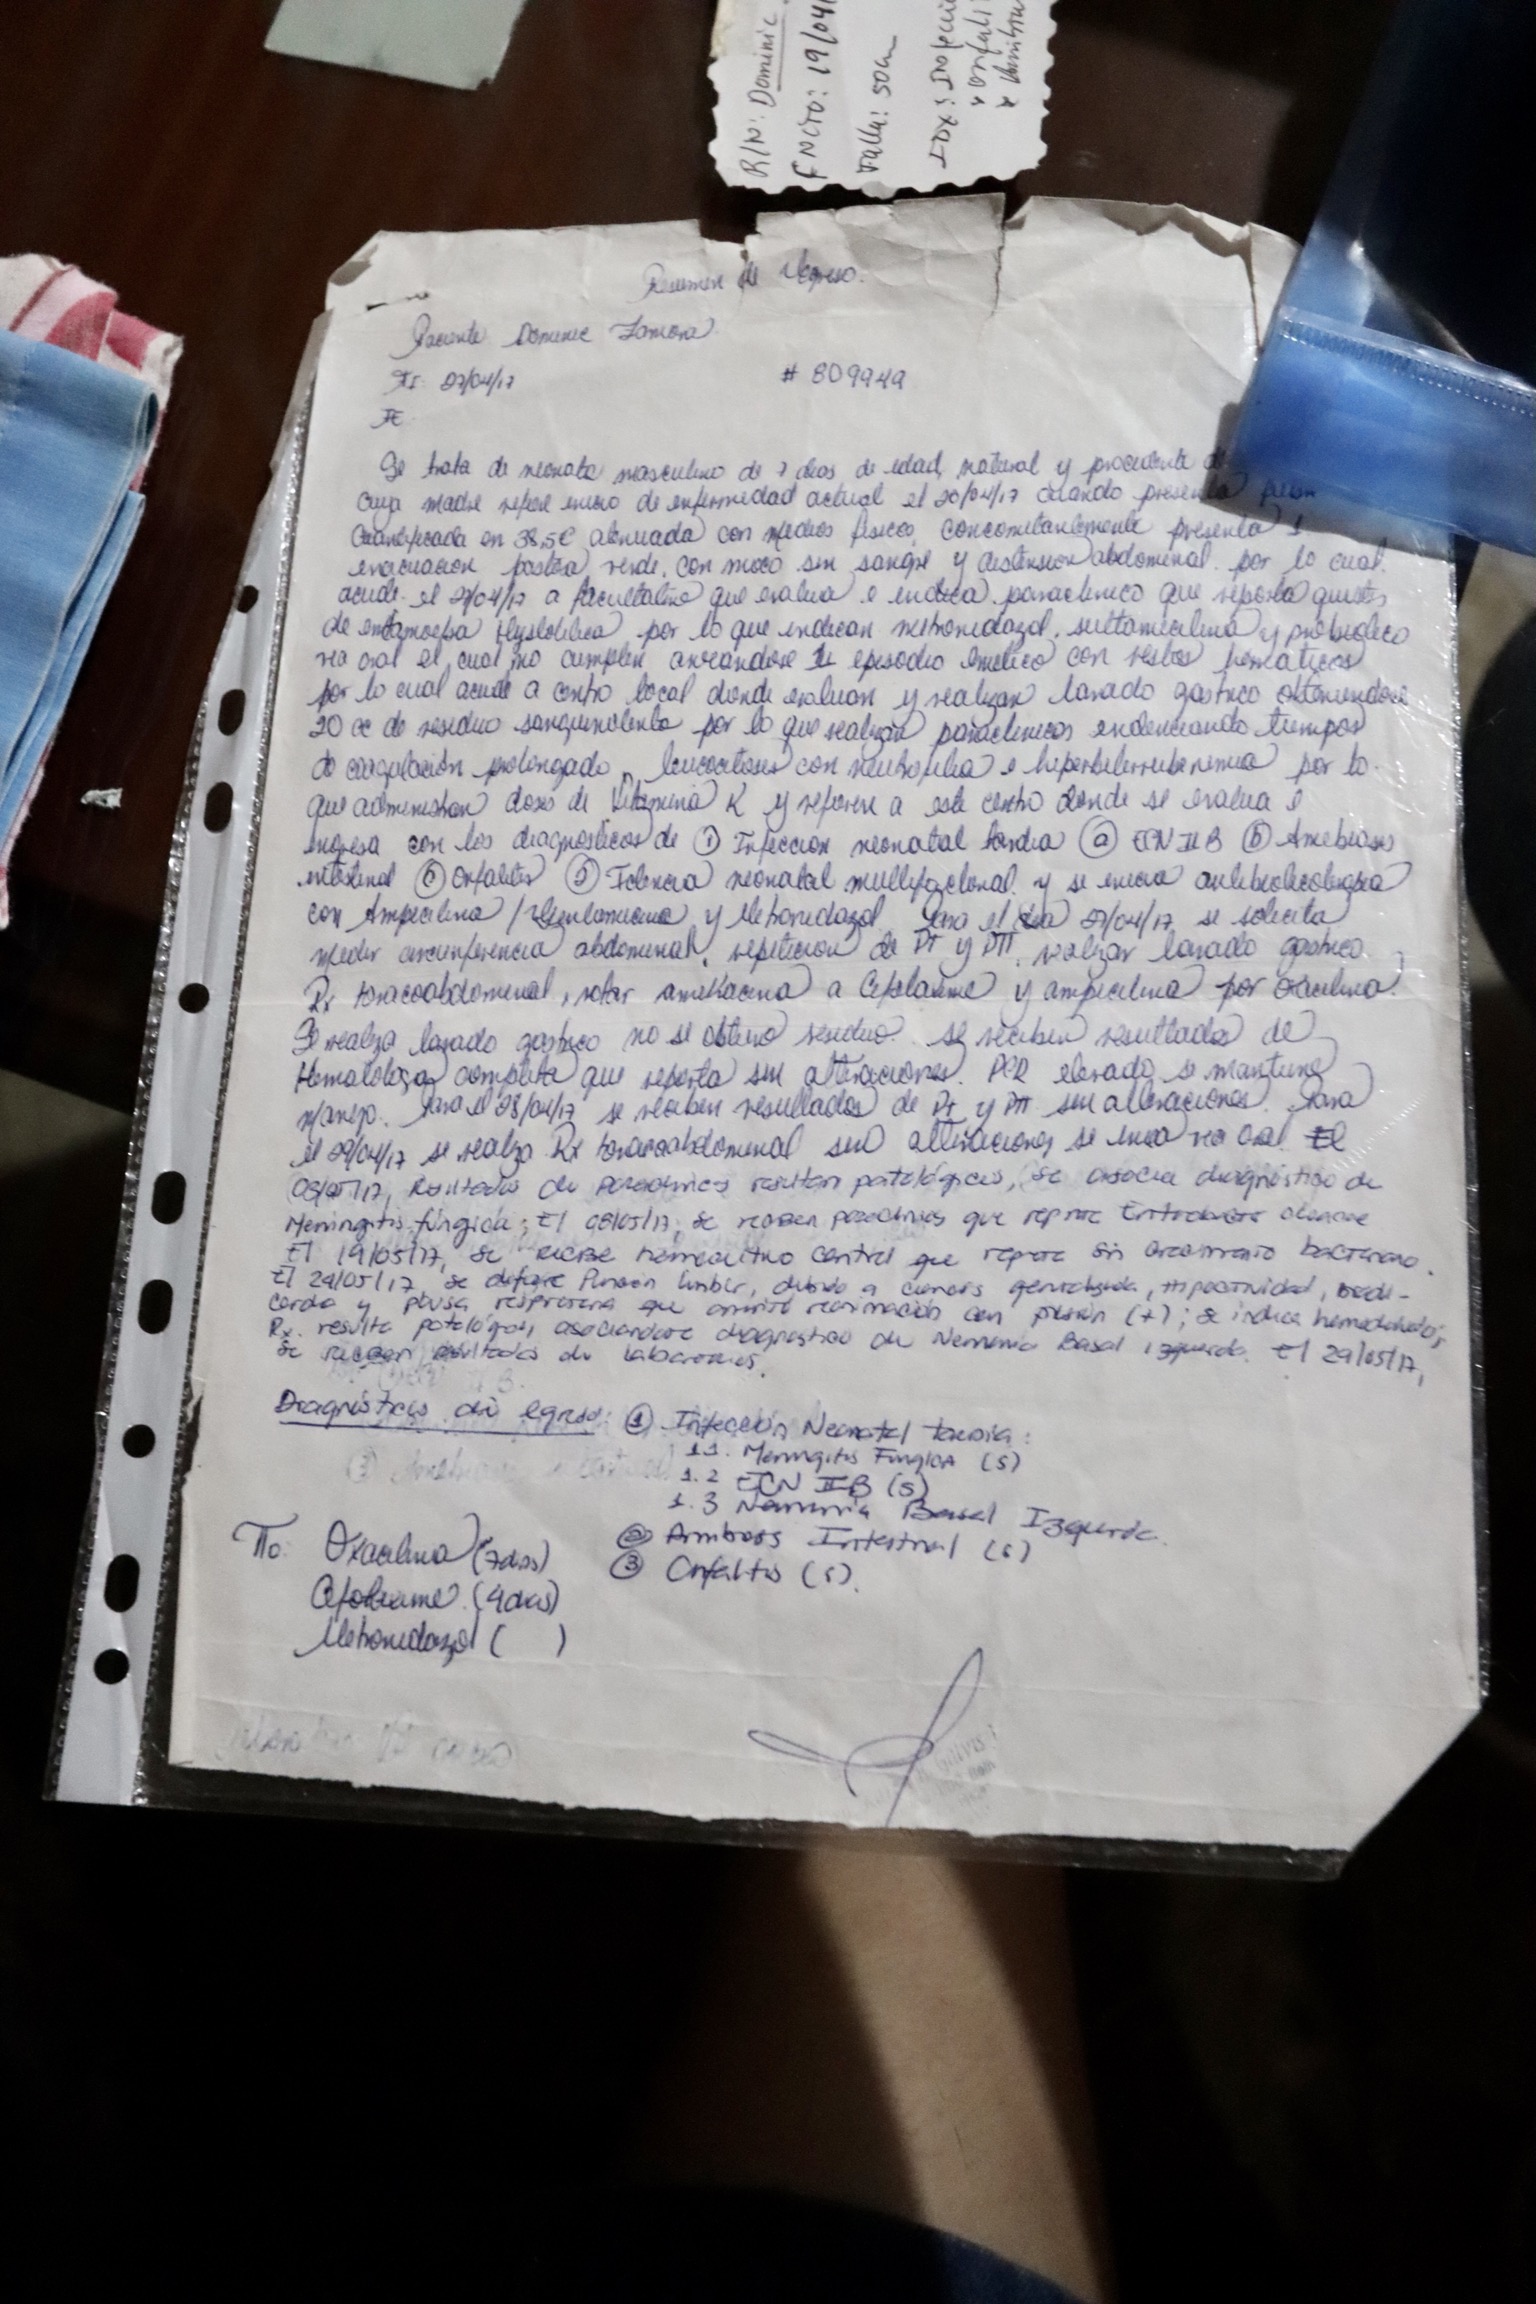 R/N: Dominic
FNCTO: 19/04/
Talla: 50cm
IDX: Infecció
Resumen de Egreso.
Paciente Dominic Zamora
FI: 27/04/17 # 809949
FE
Se trata de neonato masculino de 7 dias de edad, natural y procedente de
cuya madre refiere inicio de enfermedad actual el 20/04/17 cuando presenta
cuantificada en 38,5C atenuada con medios fisicos, concomitantemente presenta 1
evacuacion pastosa verde, con moco sin sangre y distension abdominal. por lo cual
acude el 27/04/17 a facultativo que evalua e indica paraclinico que reporta quistes
de entamoeba Hystolitica por lo que indican metronidazol, sultamicilina y probiotico
via oral el cual no cumplen anexandose 1 episodio emetico con restos hematicos
por lo cual acude a centro local donde evaluan y realizan lavado gastrico obteniendose
20 cc de residuo sanguinolento por lo que realizan paraclinicos evidenciando tiempos
de coagulación prolongado, leucocitosis con neutrofilia e hiperbilirrubinemia por lo
que administran dosis de Vitamina K y refieren a este centro donde se evalua e
ingresa con los diagnosticos de ① Infeccion neonatal tardia ⓐ ECN II B ⓑ Amebiasis
intestinal ⓒ Onfalitis ② Ictericia neonatal multifactorial y se inicia antibioticoterapia
con Ampicilina / y Metronidazol. Para el dia 27/04/17 se solicita
medir circunferencia abdominal, repeticion de PT y PTT, realizar lavado gastrico
Rx toracoabdominal, rotar amikacina a Cefotaxime y ampicilina por oxacilina.
Se realiza lavado gastrico no se obtuvo residuo. se reciben resultados de
Hematologia completa que reporta sin alteraciones. PCR elevado se mantiene
manejo. Para el 28/04/17 se reciben resultados de PT y PTT sin alteraciones. Para
el 29/04/17 se realiza Rx toracoabdominal sin alteraciones se inicia via oral. El
/05/17, Resultados de paraclinicos resultan patológicos, se asocia diagnóstico de
Meningitis fúngica; El 08/05/17, se reciben paraclinicos que reporta
El 19/05/17, se recibe hemocultivo control que reporta sin crecimiento bacteriano.
El 24/05/17, se difiere Punción lumbar, debido a cianosis generalizada, Hipoactividad, bradi-
cardia y pausa respiratoria que ameritó reanimación con presión (+); se indica hemoderivados,
Rx. resulta patológica, asociandose diagnostico de Neumonia Basal izquierda. El 29/05/17,
se reciben resultados de laboratorios.
Diagnósticos de egreso: ① Infección Neonatal tardía:
1.1. Meningitis Fungica (S)
1.2 ECN II B (S)
1.3 Neumonia Basal Izquierda.
② Amibiasis Intestinal (S)
③ Onfalitis (S).
Tto: Oxacilina (7dias)
Cefotaxime (4dias)
Metronidazol ( )